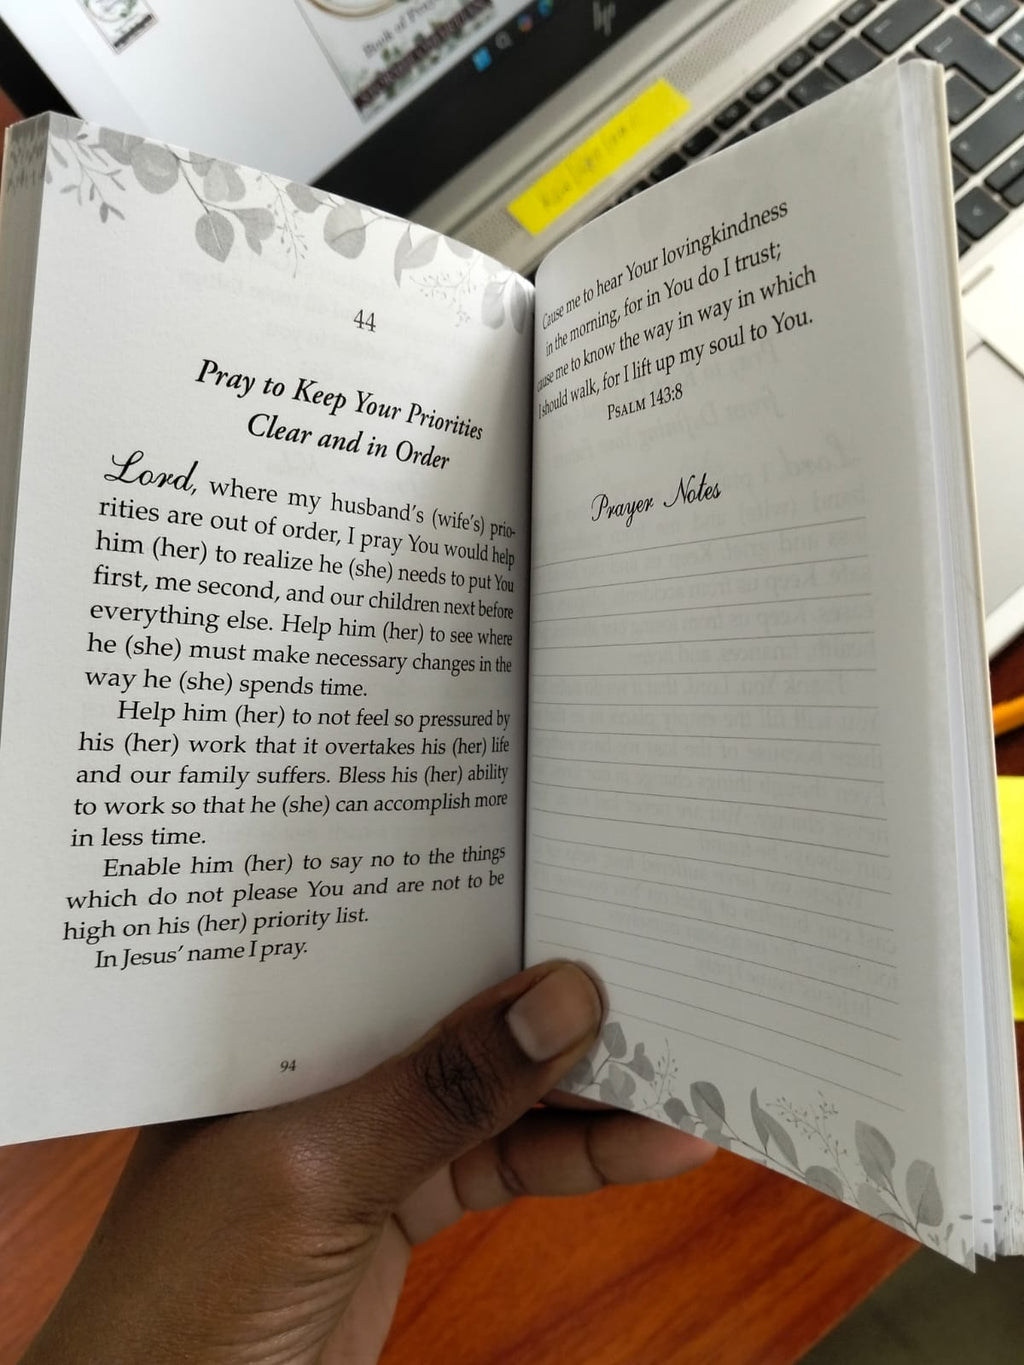 Book of
hp
44
Pray to Keep Your Priorities
Clear and in Order
Lord, where my husband's (wife's) prio-
rities are out of order, I pray You would help
him (her) to realize he (she) needs to put You
first, me second, and our children next before
everything else. Help him (her) to see where
he (she) must make necessary changes in the
way he (she) spends time.
Help him (her) to not feel so pressured by
his (her) work that it overtakes his (her) life
and our family suffers. Bless his (her) ability
to work so that he (she) can accomplish more
in less time.
Enable him (her) to say no to the things
which do not please You and are not to be
high on his (her) priority list.
In Jesus' name I pray.
94
Cause me to hear Your lovingkindness
in the morning, for in You do I trust;
cause me to know the way in way in which
I should walk, for I lift up my soul to You.
PSALM 143:8
Prayer Notes